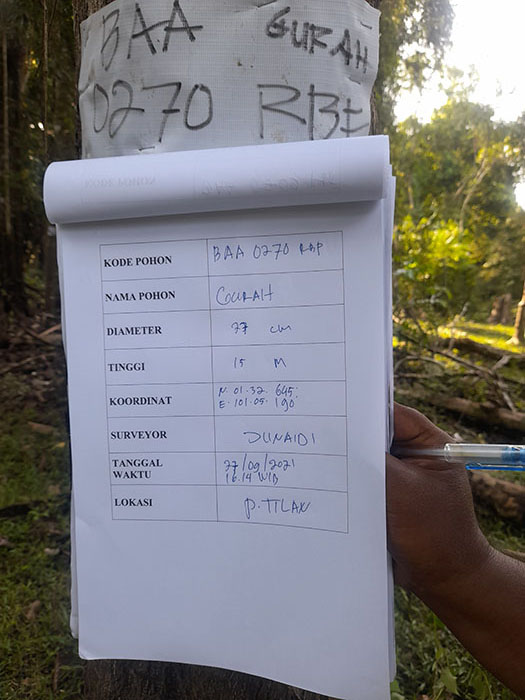 BAA GURAH
0270 RBE
KODE POHON BAA 0270 RBP
NAMA POHON GOURAH
DIAMETER 77 cm
TINGGI 15 M
KOORDINAT N. 01.32. 645.
E. 101.05. 190
SURVEYOR JUNAIDI
TANGGAL 27/09/2021
WAKTU 16.14 WIB
LOKASI P. TILAN